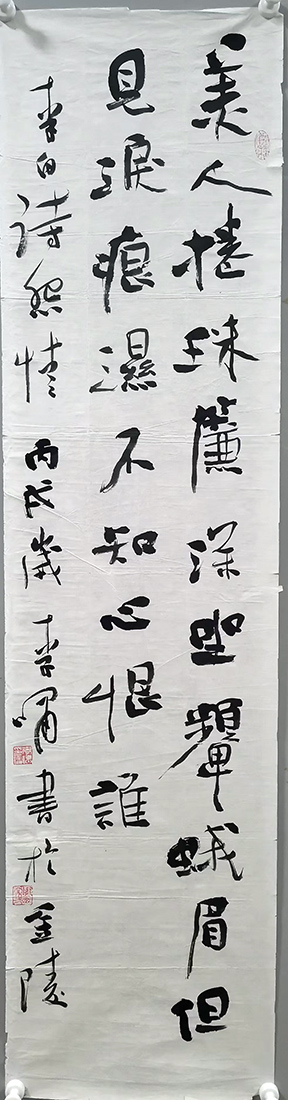 美人捲珠簾深坐顰蛾眉但
見淚痕濕不知心恨誰
李白詩怨情 丙戌歲 李嘯書於金陵